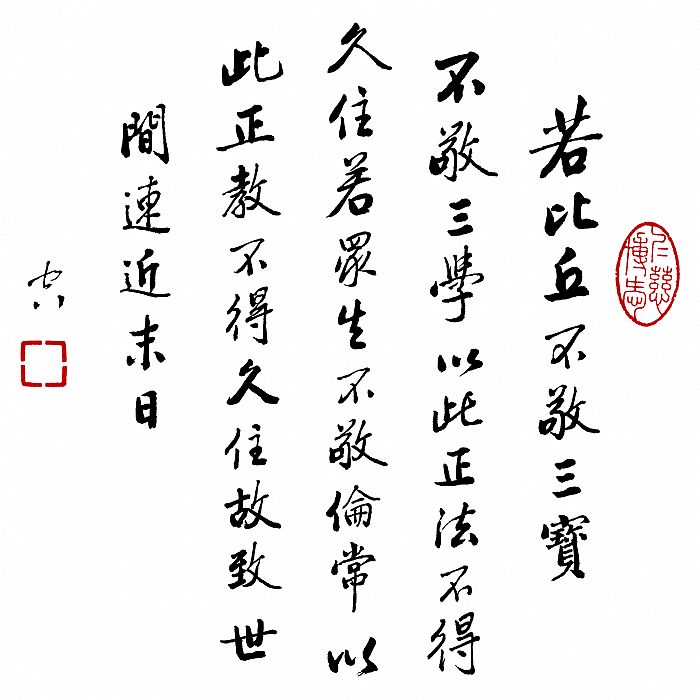 仁慈
若比丘不敬三寶
不敬三學以此正法不得
久住若眾生不敬倫常以
此正教不得久住故致世
間連近末日